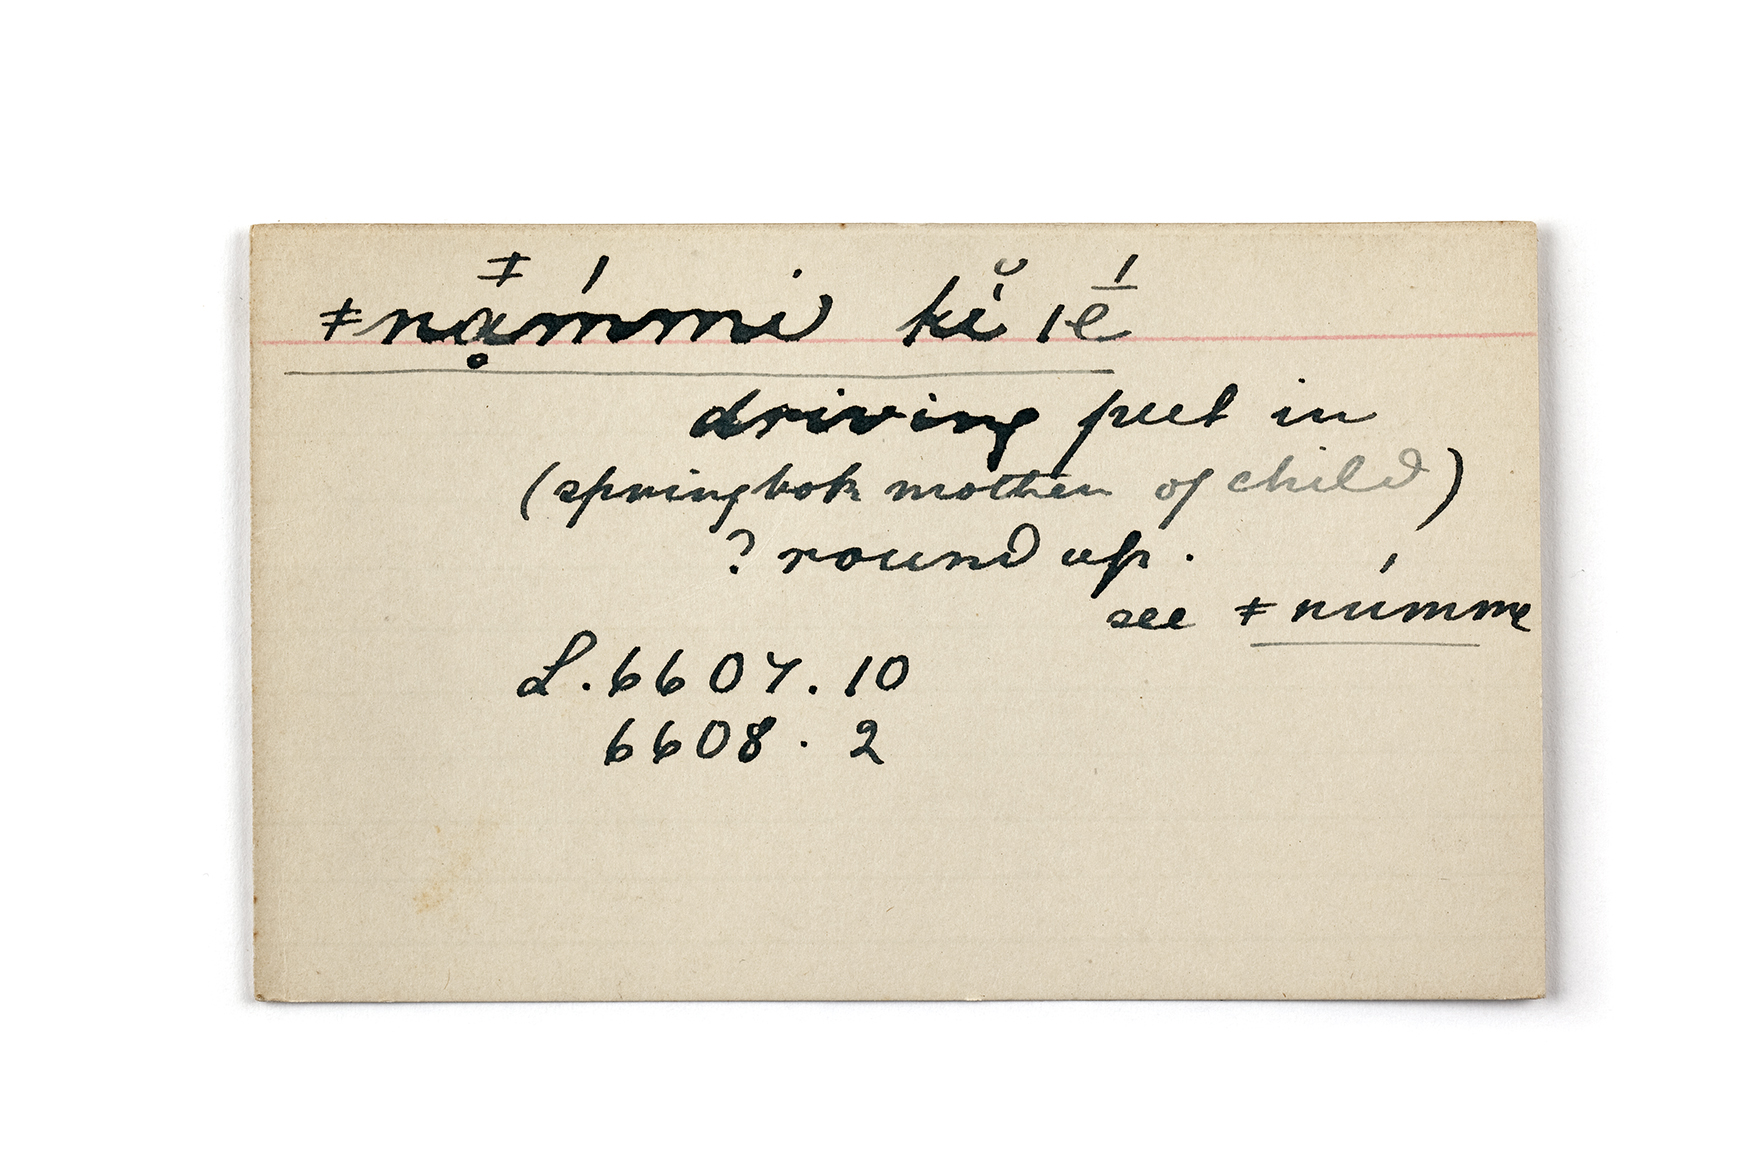 ǂnạ̄́mmi kĭ ǀé̱
driving put in
(springbok mother of child)
? round up.
see ǂnúmme
L. 6607. 10
6608. 2